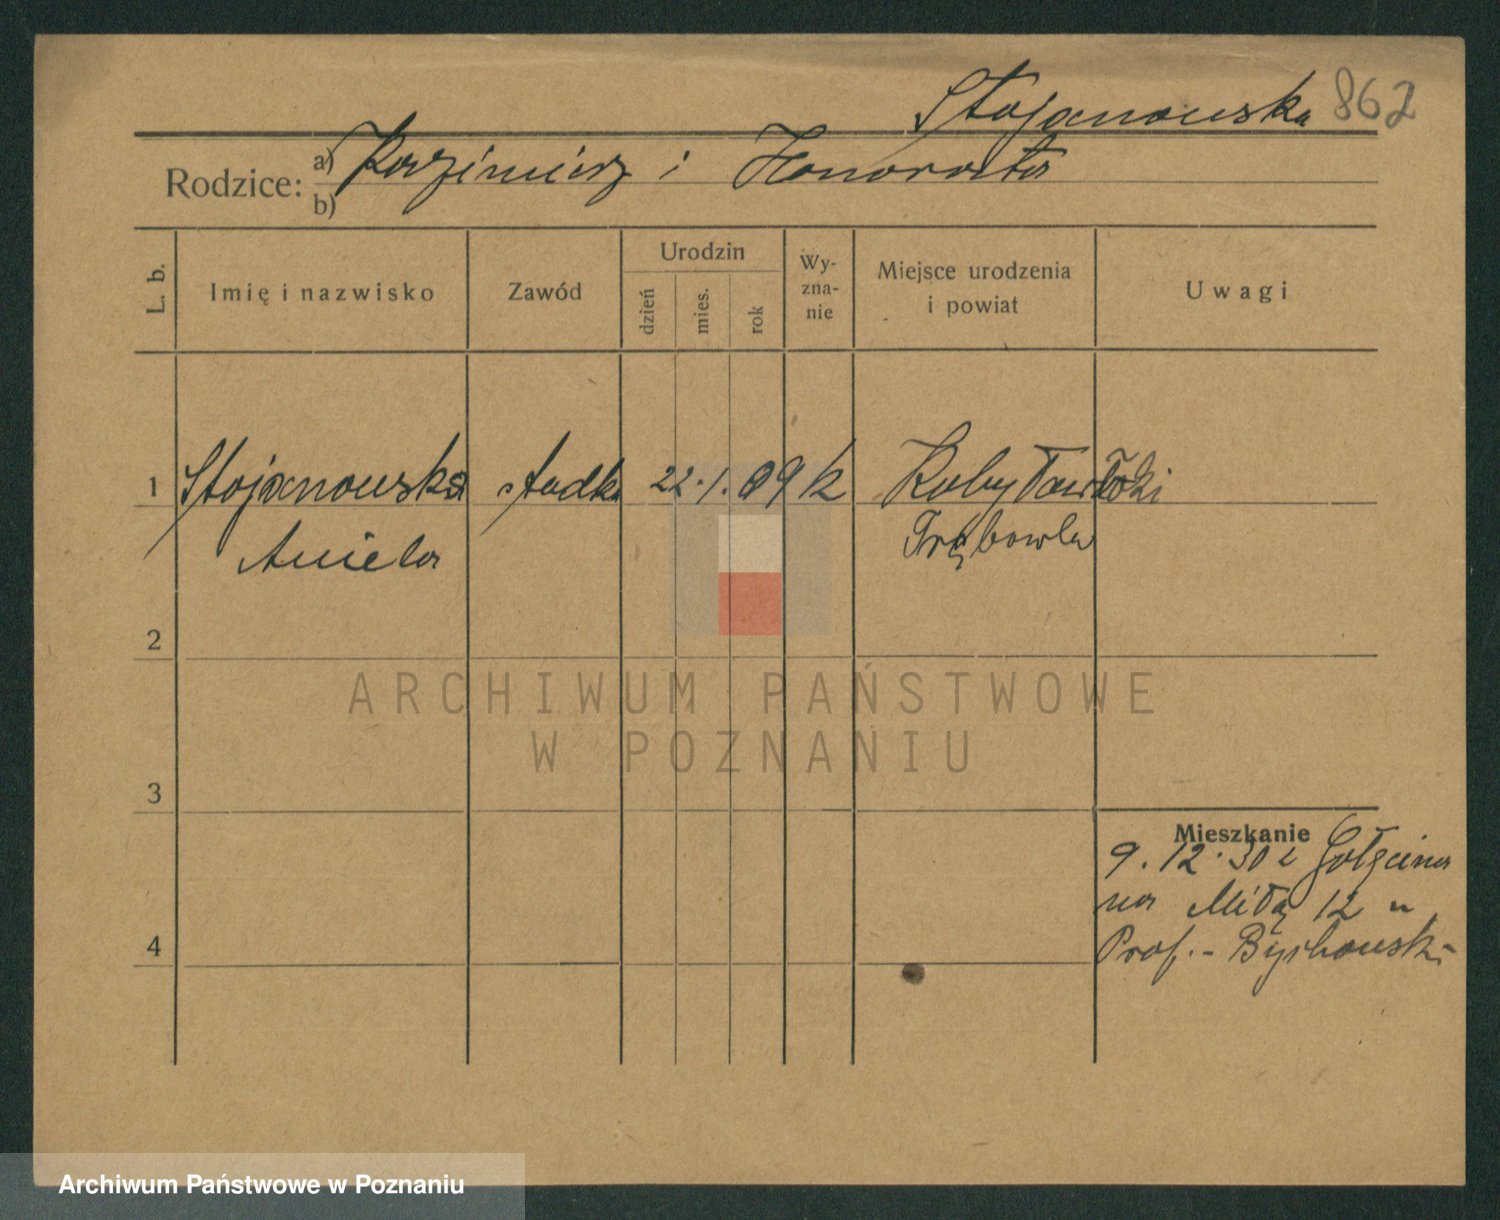 Stojanowska 862
Rodzice: a) Kazimierz i Honorata
b)
L. b.
Imię i nazwisko
Zawód
Urodzin
dzień
mies.
rok
Wy-
zna-
nie
Miejsce urodzenia
i powiat
Uwagi
1 Stojanowska studka 22. 1. 09 k Kobyłowłoki
Aniela Trębowla
2
ARCHIWUM PAŃSTWOWE
W POZNANIU
3
Mieszkanie
9. 12. 30 z Gołęcina
na Miłą 12 u
4 Prof. - Bychowski
Archiwum Państwowe w Poznaniu